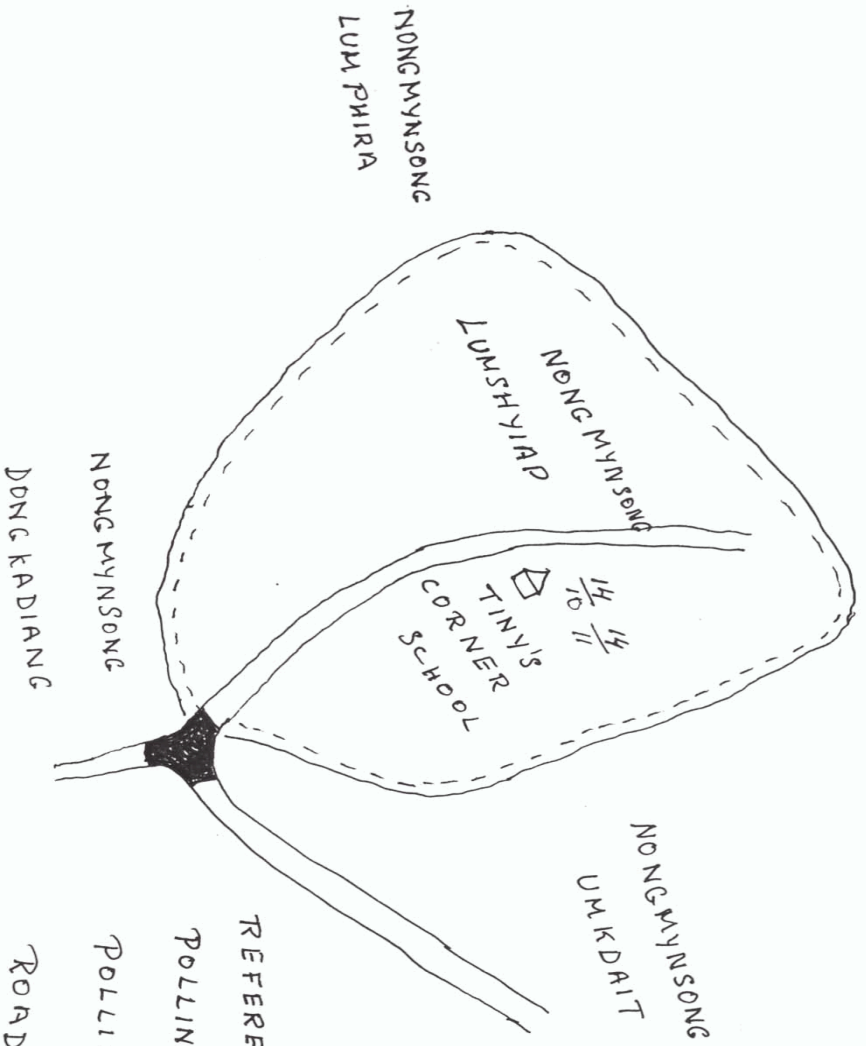 NONGMYNSONG
LUM PHIRA
NONGMYNSONG
LUMSHYIAP
14/10 14/11
TINY'S
CORNER
SCHOOL
NONGMYNSONG
UMKDAIT
NONGMYNSONG
DONGKADIANG
REFERE
POLLIN
POLLI
ROAD